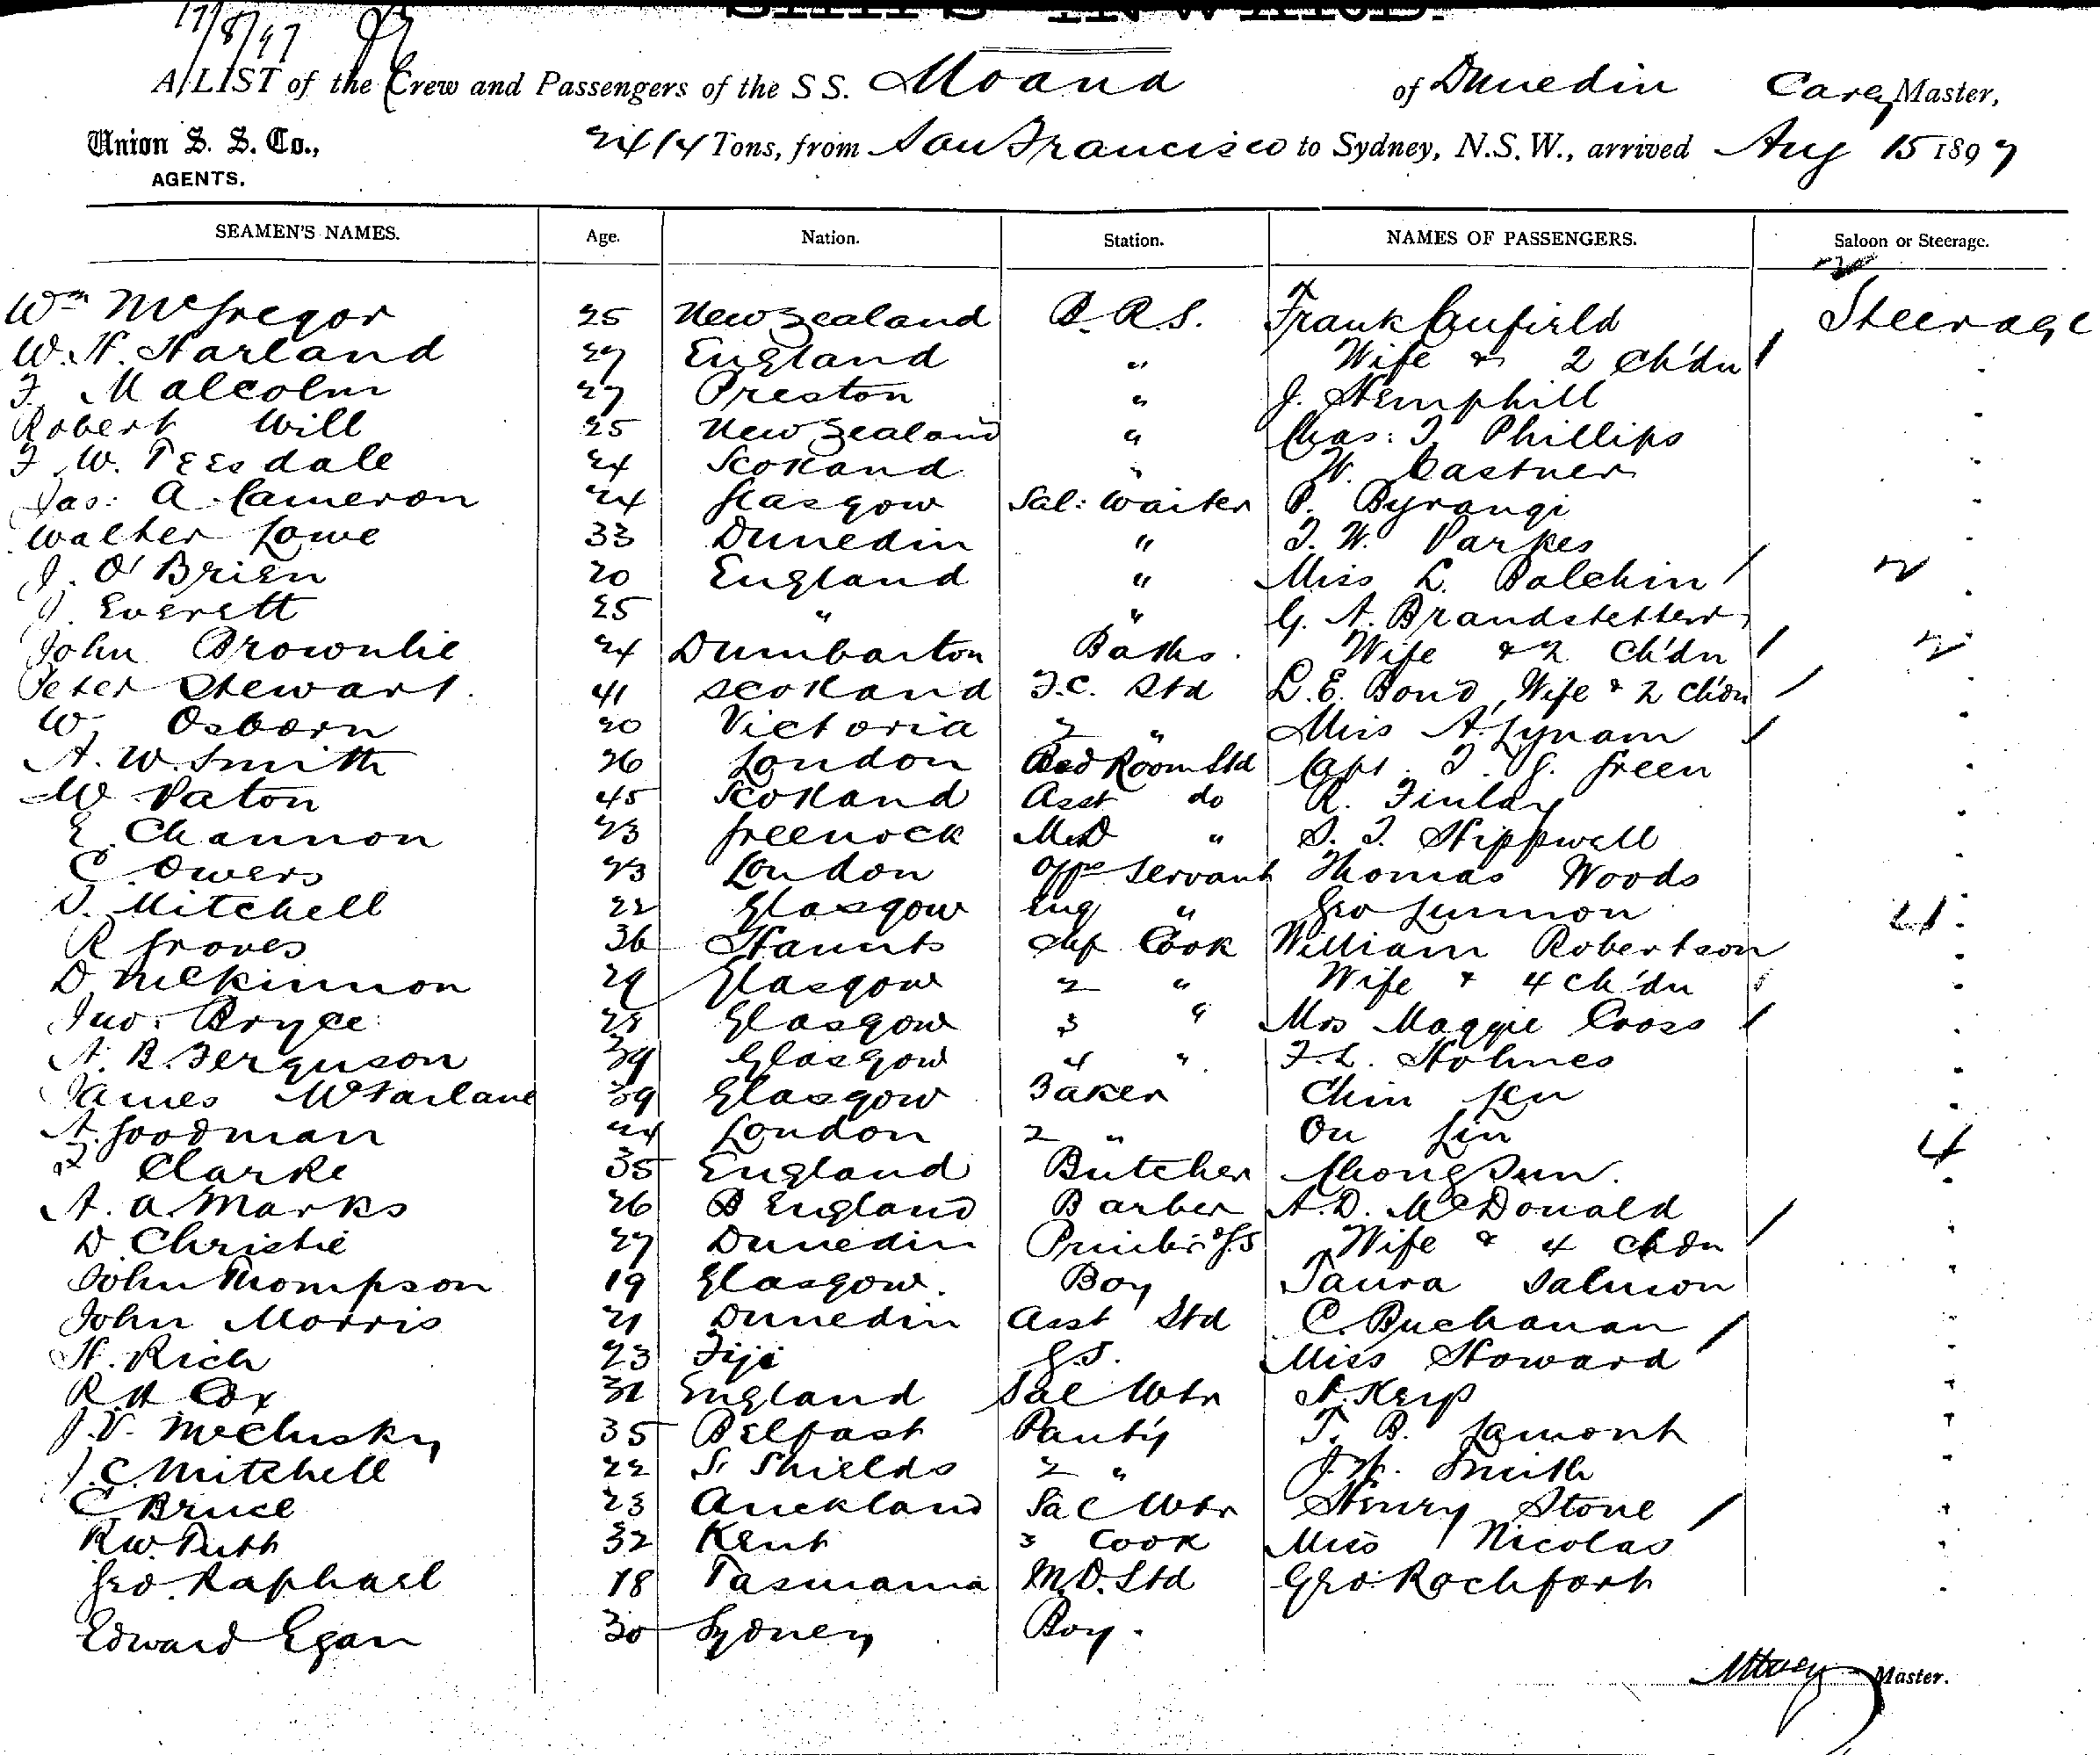 17/8/97
SHIPS INWARD.
A LIST of the Crew and Passengers of the S S. Moana of Dunedin Carey Master,
Union S. S. Co., AGENTS. 2414 Tons, from San Francisco to Sydney, N.S.W., arrived Aug 15 1897
SEAMEN'S NAMES. Age. Nation. Station. NAMES OF PASSENGERS. Saloon or Steerage.
Wm McGregor 25 New Zealand B.R.S. Frank Canfield Steerage
W. H. Harland 27 England " Wife & 2 Ch'dn
F. Malcolm 27 Preston " J. Hemphill
Robert Will 25 New Zealand " Chas: T. Phillips
F. W. Teesdale 24 Scotland " W. Castner
Jas: A Cameron 24 Glasgow Sal: Waiter P. Byrangi
Walter Lowe 33 Dunedin " T. W. Parkes
J. O'Brien 20 England " Miss L. Balchin 2
J. Everett 25 " " G. A. Brandstetter
John Brownlie 24 Dumbarton Baths Wife & 2 Ch'dn 2
Peter Stewart 41 Scotland F.C. Std L.E. Bond, Wife & 2 Ch'dn
W. Osborn 20 Victoria 2 " Miss A. Lynam
A. W. Smith 26 London Bed Room Std Capt. T. G. Green
W. Paton 45 Scotland Asst do R. Finlay
E. Channon 23 Greenock M.D " S. T. Hippwell
C. Owers 23 London Offrs Servant Thomas Woods
D. Mitchell 22 Glasgow Eng " Geo Lunnon 21
R Groves 36 Haunts Chf Cook William Robertson
D McKinnon 29 Glasgow 2 " Wife & 4 Ch'dn
Jno. Bryce 28 Glasgow 3 " Mrs Maggie Cross
A. B. Ferguson 39 Glasgow 4 " F. L. Holmes
James McFarlane 39 Glasgow Baker Chin Len
A. Goodman 24 London 2 " On Lin
Clarke 35 England Butcher Chong Sun. 4
A. A. Marks 26 England Barber A. D. McDonald
D. Christie 27 Dunedin Printer & G.S Wife & 4 Chdn
John Thompson 19 Glasgow. Boy Laura Salmon
John Morris 21 Dunedin Asst Std C. Buchanan
H. Rich 23 Fiji G.S. Miss Howard
R H Cox 31 England Sal Wtr A. Kerp
J. V. McClusky 35 Belfast Pant'y T. B. Lamont
J. C Mitchell 22 S. Shields 2 " J. H. Smith
C. Bruce 23 Auckland Sal Wtr Henry Stone
R. W. Tutt 32 Kent 3 Cook Miss Nicolas
Geo. Raphael 18 Tasmania M.D. Std Geo. Rochfort
Edward Egan 30 Sydney Boy.
MCarey Master.